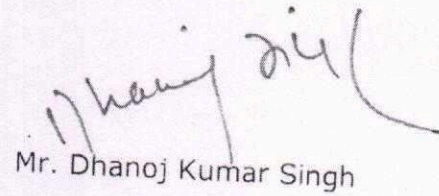 Dhanoj Singh
Mr. Dhanoj Kumar Singh